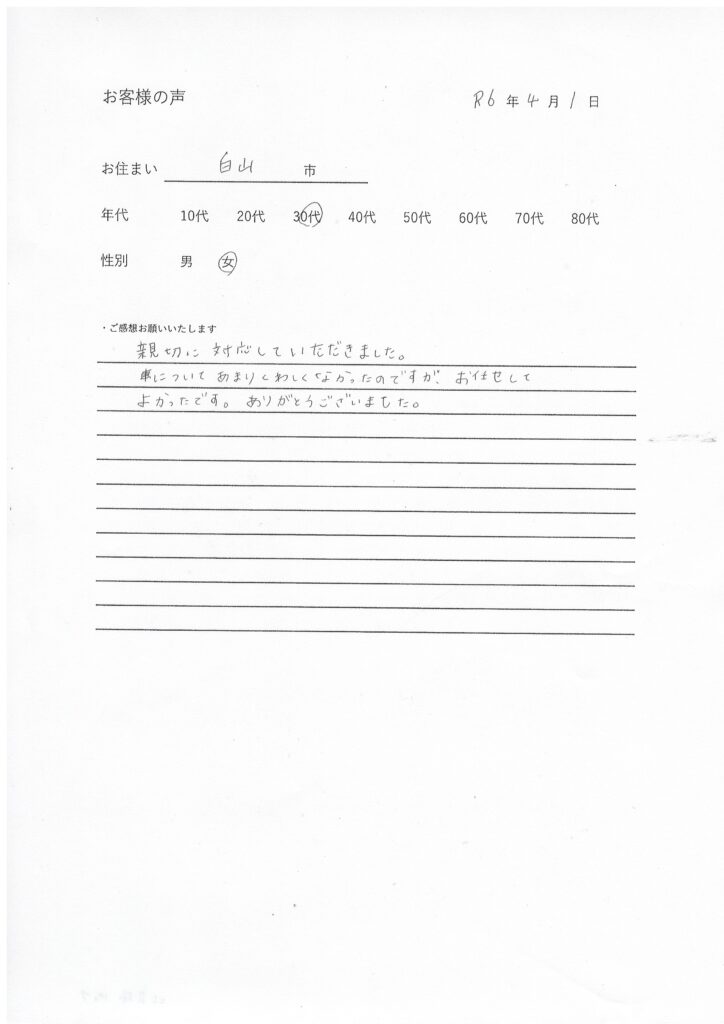 お客様の声 R6年4月1日
お住まい 白山 市
年代 10代 20代 30代 40代 50代 60代 70代 80代
性別 男 女
・ご感想お願いいたします
親切に対応していただきました。
車についてあまりくわしくなかったのですが、お任せして
よかったです。ありがとうございました。